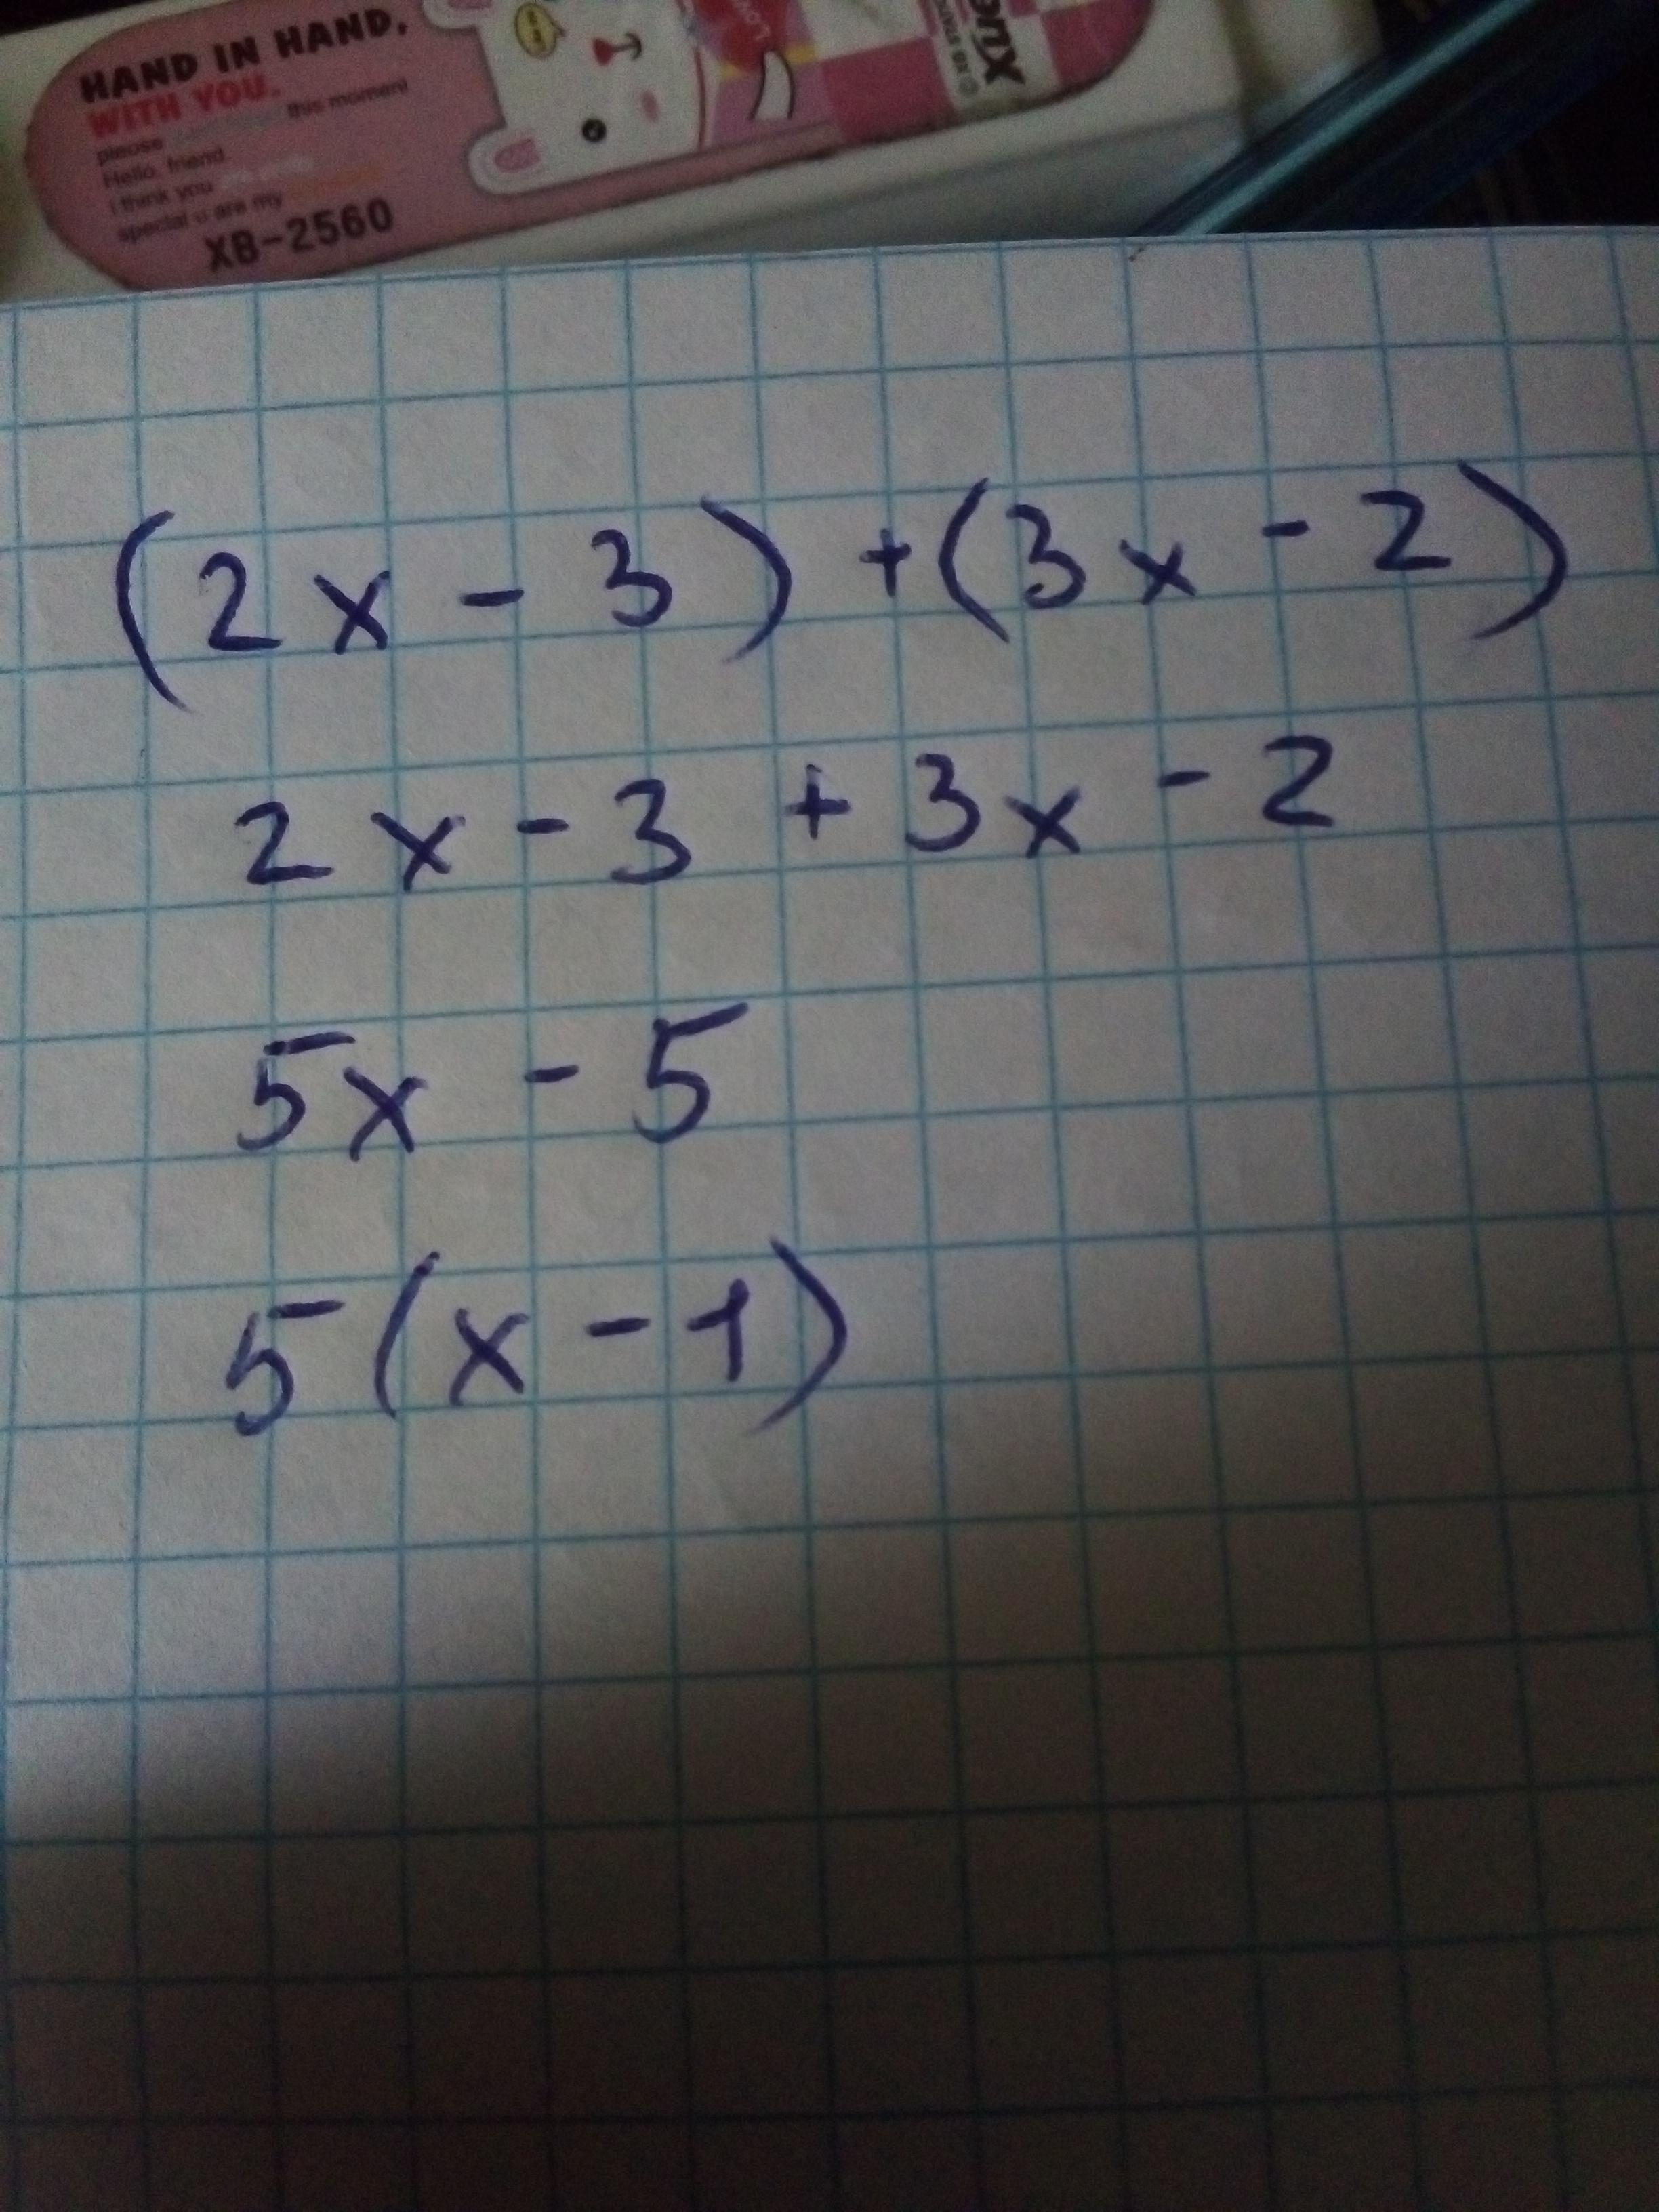 HAND IN HAND,
WITH YOU.
please this moment
Hello, friend.
I think you
special u are my
XB-2560
LOVE
(2x - 3) + (3x - 2)
2x - 3 + 3x - 2
5x - 5
5(x - 1)